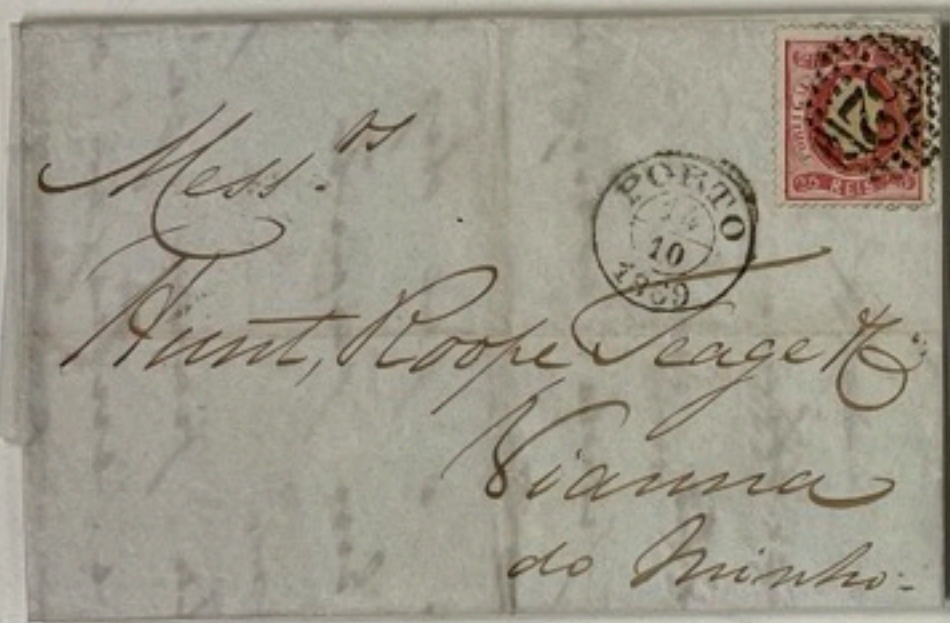 Mess.rs
Hunt, Roope Teage & Co
Vianna
do Minho.
PORTO
10
1869
52
REIS